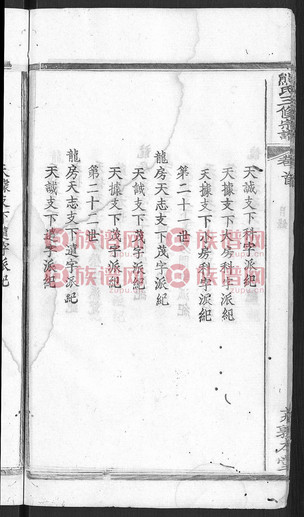 熊氏三修族譜
卷首
天誠支下科字派紀
天據支下大房科字派紀
天據支下小房科字派紀
第二十一世
龍房天志支下茂字派紀
天誠支下茂字派紀
天據支下茂字派紀
第二十二世
龍房天志支下道字派紀
天誠支下道字派紀
天據支下道字派紀
族譜网
zupu.cn